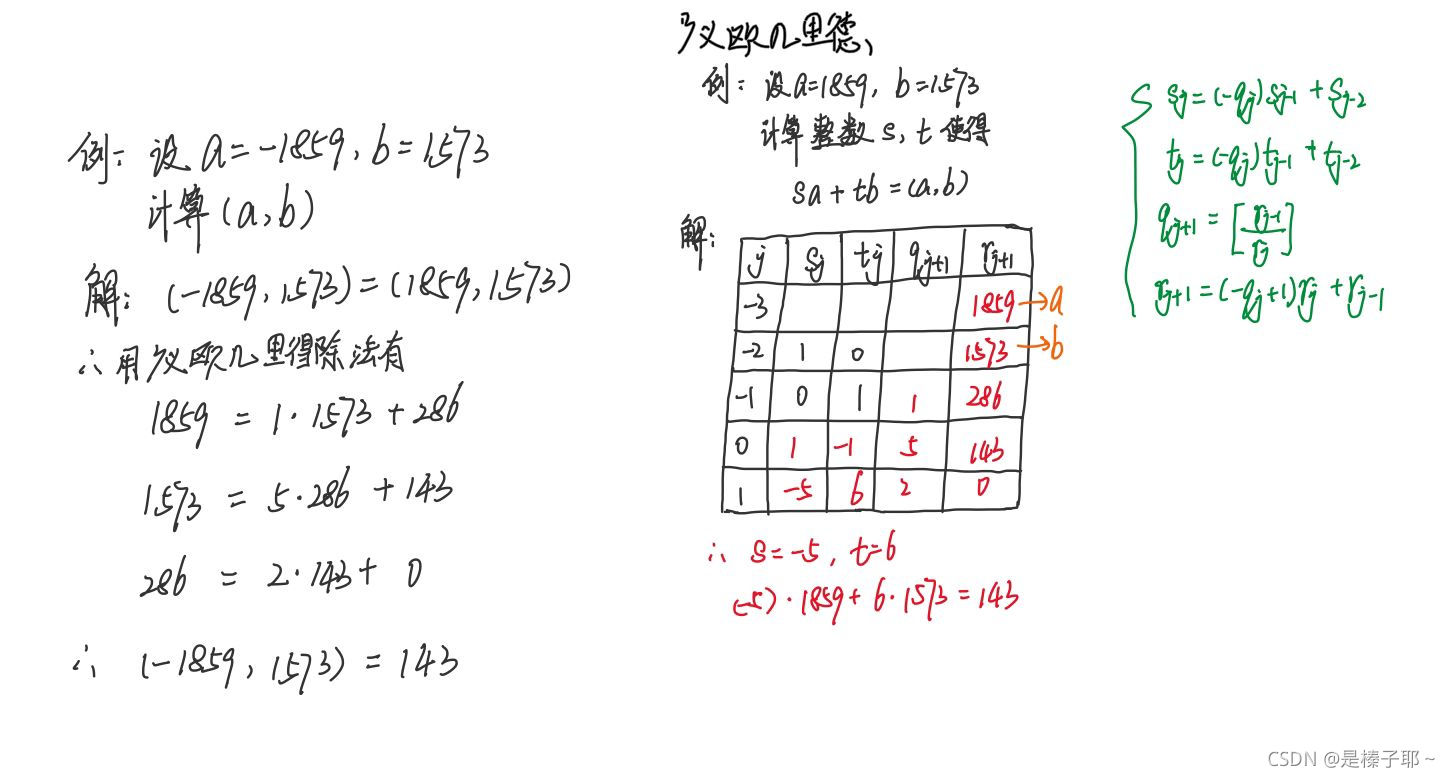 例：设a=-1859，b=1573
计算(a,b)
解：(-1859,1573)=(1859,1573)
∴用广义欧几里得除法有
1859 = 1·1573+286
1573 = 5·286+143
286 = 2·143+0
∴ (-1859,1573) = 143
广义欧几里德、
例：设a=1859，b=1573
计算整数s,t使得
sa+tb=(a,b)
解：
j s_j t_j q_{j+1} r_{j+1}
-3 1859→a
-2 1 0 1573→b
-1 0 1 1 286
0 1 -1 5 143
1 -5 6 2 0
∴ s=-5，t=6
(-5)·1859+6·1573=143
s_j=(-q_j)s_{j-1}+s_{j-2}
t_j=(-q_j)t_{j-1}+t_{j-2}
q_{j+1}=[r_{j-1}/r_j]
r_{j+1}=(-q_{j+1})r_j+r_{j-1}
CSDN @是榛子耶~